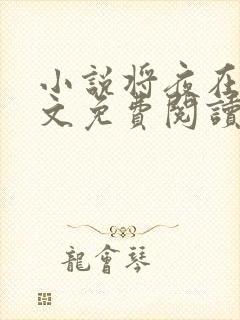 小说将夜在
文免費閱讀
龍會琴